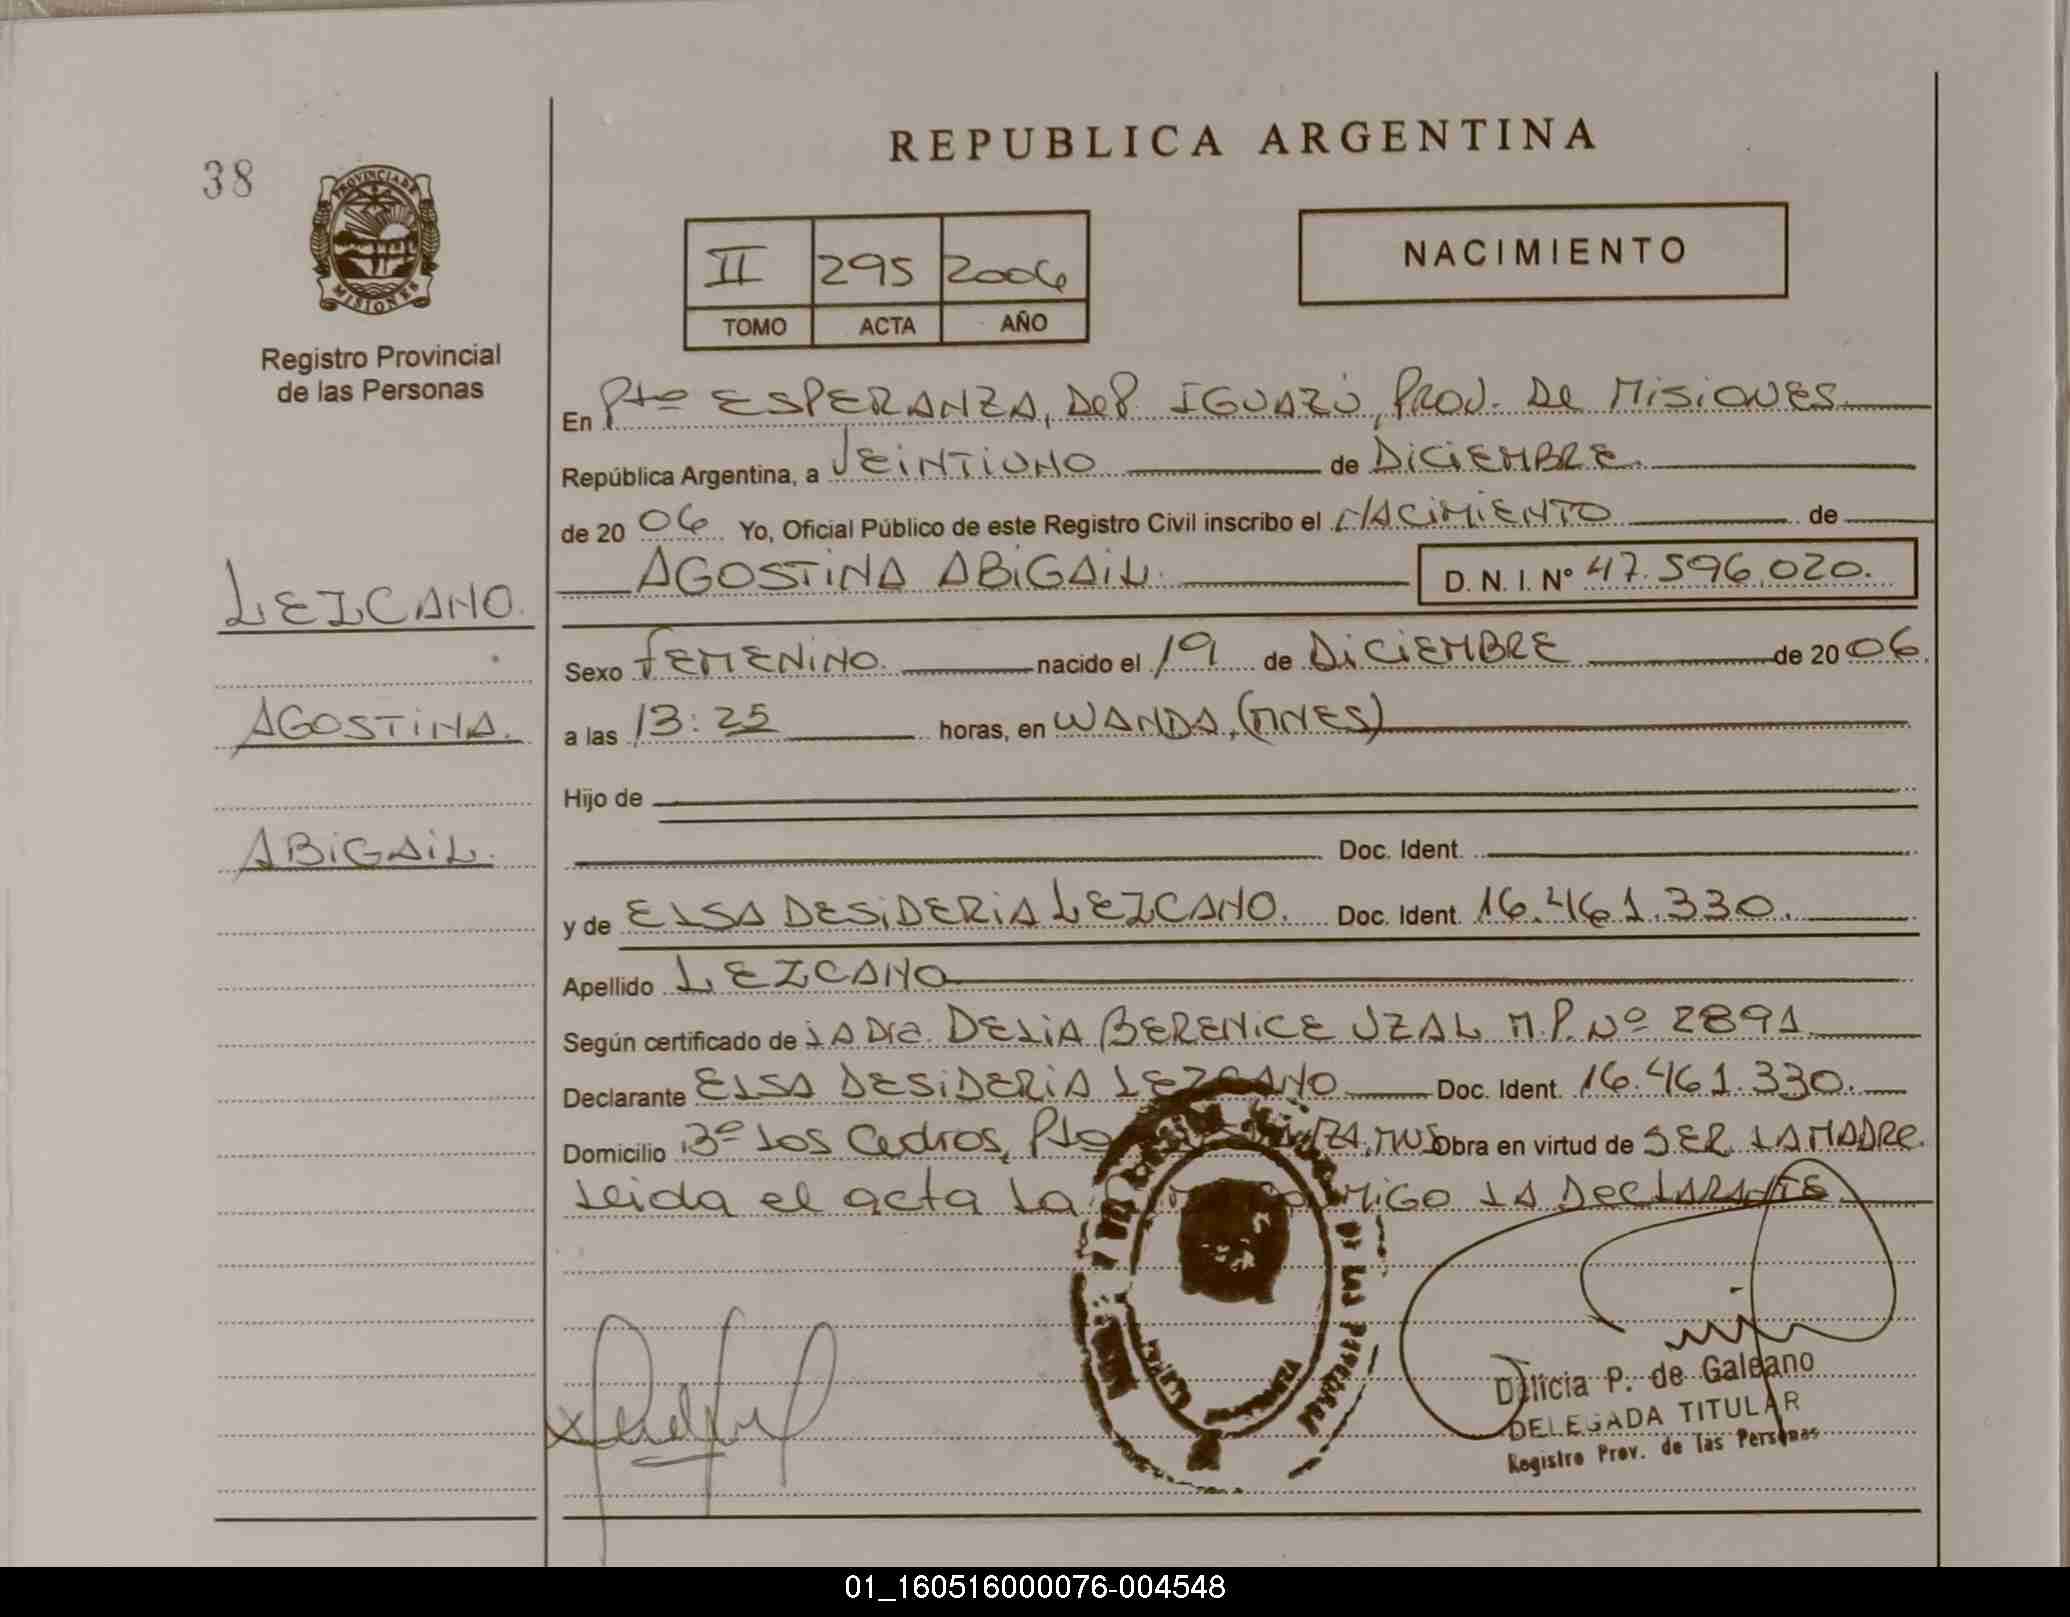 REPUBLICA ARGENTINA
38
PROVINCIA DE
MISIONES
Registro Provincial
de las Personas
II 295 2006
TOMO ACTA AÑO
NACIMIENTO
En Pto ESPERANZA, DEP. IGUAZÚ, PROV. DE MISIONES
República Argentina, a VEINTIUNO de DICIEMBRE.
de 20 06 Yo, Oficial Público de este Registro Civil inscribo el NACIMIENTO de
AGOSTINA ABIGAIL. D. N. I. Nº 47.596.020.
LEZCANO.
AGOSTINA.
ABIGAIL.
Sexo FEMENINO. nacido el 19 de DICIEMBRE de 20 06.
a las 13:25 horas, en WANDA, (MNES)
Hijo de
Doc. Ident.
y de ELSA DESIDERIA LEZCANO. Doc. Ident. 16.461.330.
Apellido LEZCANO
Según certificado de LA Dra. DELIA BERENICE UZAL M.P. Nº 2891
Declarante ELSA DESIDERIA LEZCANO Doc. Ident. 16.461.330.
Domicilio Bº Los Cedros, Pto Obra en virtud de SER LA MADRE.
Leida el acta la LA DECLARANTE
DE LAS PERSONAS
Delicia P. de Galeano
DELEGADA TITULAR
Registro Prov. de las Personas
01_160516000076-004548